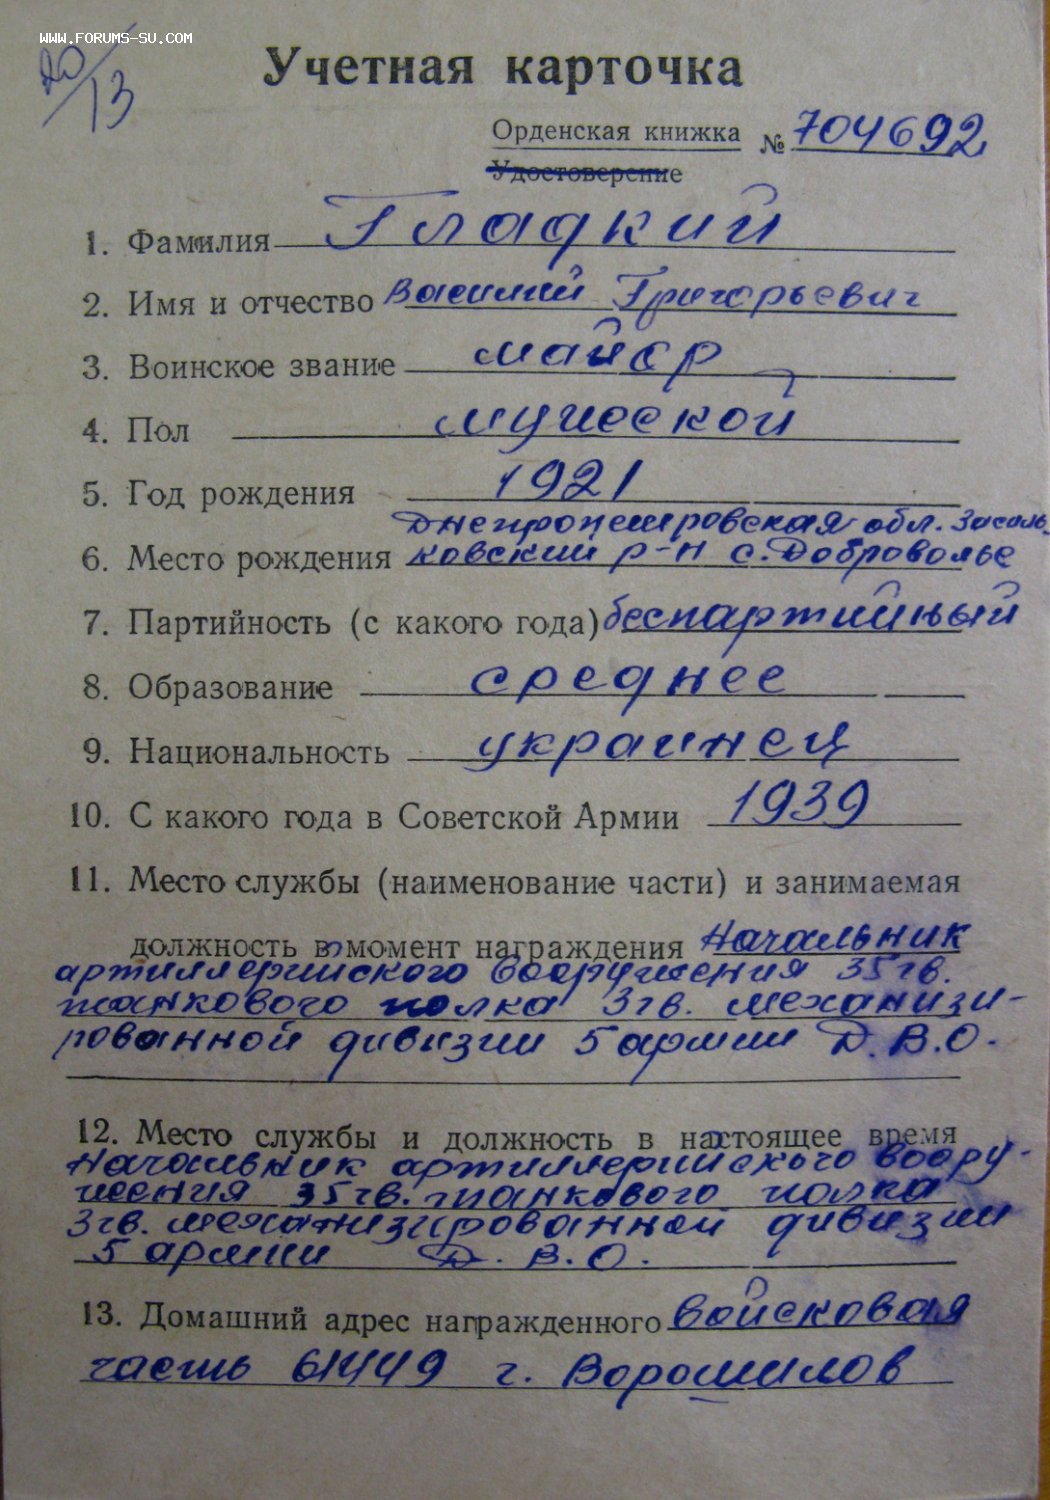 WWW.FORUMS-SU.COM
20/13
Учетная карточка
Орденская книжка № 704692
Удостоверение
1. Фамилия Гладкий
2. Имя и отчество Василий Григорьевич
3. Воинское звание майор
4. Пол мужской
5. Год рождения 1921
Днепропетровская обл. Василь-
6. Место рождения ковский р-н с. Доброволье
7. Партийность (с какого года) беспартийный
8. Образование среднее
9. Национальность украинец
10. С какого года в Советской Армии 1939
11. Место службы (наименование части) и занимаемая
должность в момент награждения Начальник
артиллерийского вооружения 35 гв.
танкового полка 3 гв. механизи-
рованной дивизии 5 армии Д.В.О.
12. Место службы и должность в настоящее время
Начальник артиллерийского воору-
жения 35 гв. танкового полка
3 гв. механизированной дивизии
5 армии Д.В.О.
13. Домашний адрес награжденного войсковая
часть 61449 г. Ворошилов